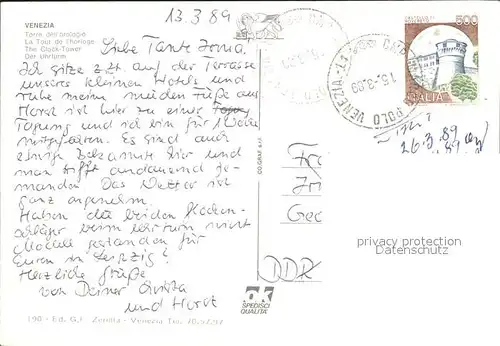 VENEZIA
Torre dell'orologio
La Tour de l'horloge
The Clock-Tower
Der Uhrturm
13.3.89
Liebe Tante Irma.
Ich sitze z.Zt auf der Terrasse
unseres kleinen Hotels und
ruhe meine müden Füße aus.
Horst ist hier zu einer
Tagung und ich bin für 1 Woche
mitgefahren. Es sind auch
einige Bekannte hier und
man trifft andauernd je-
manden. Das Wetter ist
ganz angenehm.
Haben die beiden Glocken-
schläger beim Uhrturm nicht
Modell gestanden für
Euren in Leipzig?
Herzliche Grüße
von Deiner
und Horst
190 - Ed. G.
Zanella - Venezia
500
ITALIA
VENEZIA
15-3-89
26.3.89
DDR
SPEDISCI
QUALITÀ
privacy protection
Datenschutz